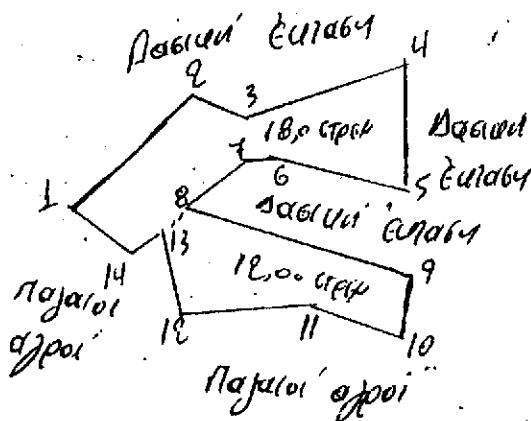 Δασική έκταση
2
4
3
18,0 στρεμ
Δασική
έκταση
7
6
5
1
8
Δασική έκταση
13
14
9
12,00 στρεμ
Παλαιοί
αγροί
12
11
10
Παλαιοί αγροί